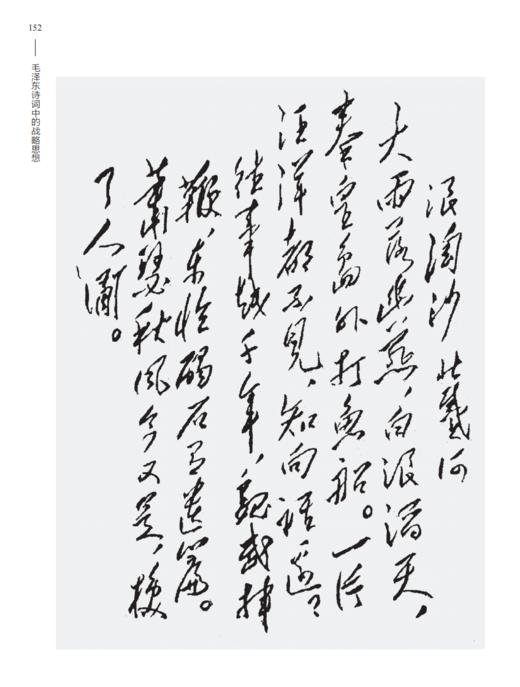 152
毛泽东诗词中的战略思想
浪淘沙 北戴河
大雨落幽燕,白浪滔天,
秦皇岛外打鱼船。一片
汪洋都不见,知向谁边?
往事越千年,魏武挥
鞭,东临碣石有遗篇。
萧瑟秋风今又是,换
了人间。